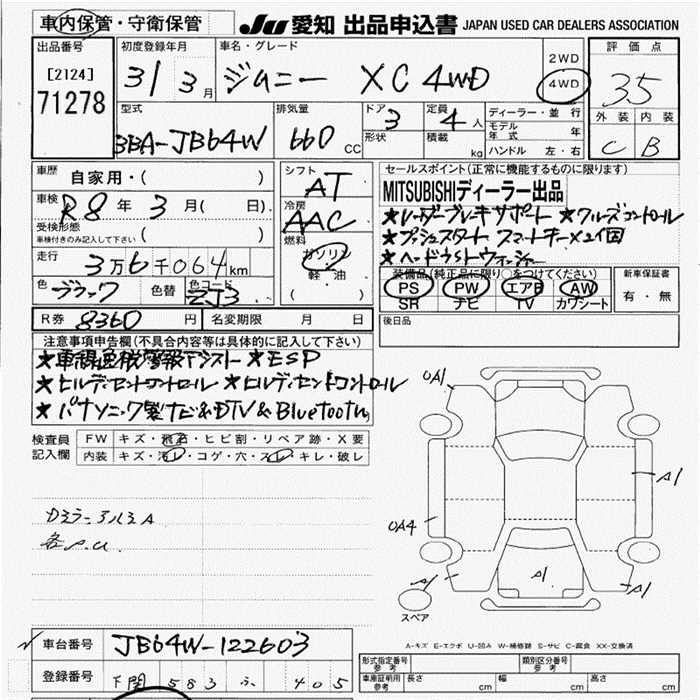 車内保管・守衛保管 JU 愛知 出品申込書 JAPAN USED CAR DEALERS ASSOCIATION
出品番号 初度登録年月 車名・グレード 2WD 評価点
[2124] 31 3月 ジムニー XC 4WD 4WD 35
71278
型式 排気量 ドア 3 定員 4人 ディーラー・並行 外装 内装
3BA-JB64W 660 CC 形状 積載 kg モデル年式 年 C B
ハンドル 左・右
車歴 自家用・( ) シフト AT セールスポイント(正常に機能するものに限ります)
車検 R8年 3月( 日) 冷房 AAC MITSUBISHIディーラー出品
受検形態 ★レーダーブレーキサポート ★クルーズコントロール
車検付きのみ記入して下さい ( ) 燃料 ★プッシュスタート スマートキー×2個
走行 3万6千064km ガソリン ★ヘッドライトウォッシャー
色 ブラック 色替 色コード ZJ3 軽・油 ( ) 装備品(純正品に限り)○をつけてください 新車保証書
PS PW エアB AW 有・無
SR ナビ TV カワシート
R券 8360 円 名変期限 月 日 後日品
注意事項申告欄(不具合内容等は具体的に記入して下さい)
★車線逸脱警報アシスト ★ESP
★ヒルディセントコントロール ★ヒルディセントコントロール
★パナソニック製ナビ&DTV&Bluetooth
検査員記入欄 FW キズ・飛石・ヒビ割・リペア跡・X要
内装 キズ・汚レ・コゲ・穴・スレ・キレ・破レ
0A1
A1
Dミラー アルミA
0A4
各P.U.
A1 A1 A1
スペア
A-キズ E-エクボ U-凹み W-補修跡 S-サビ C-腐食 XX-交換済
車台番号 JB64W-122603
登録番号 下関 583 ふ 405
形式指定番号 参考 類別区分番号 参考
車庫証明用 参考 長さ cm 幅 cm 高さ cm